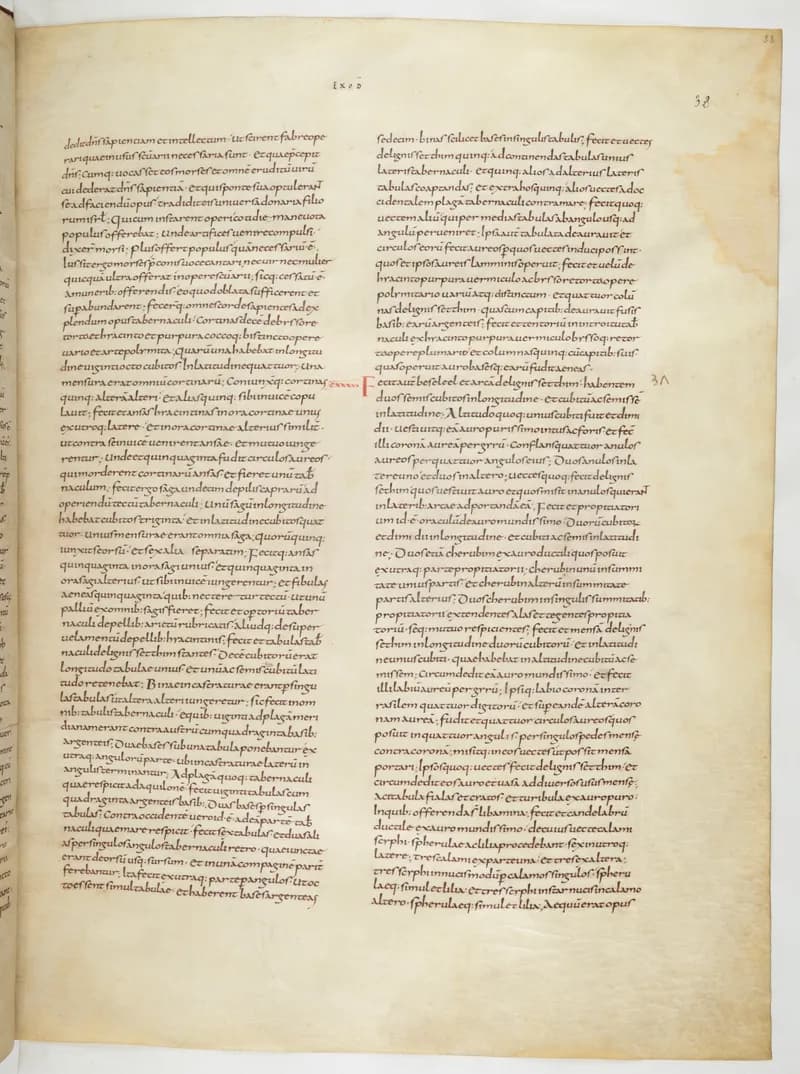 EXOD̄
38
dedit dn̄s sapientiam et intellectum · Ut scirent fabre ope
rari quae in usus sc̄uarii necessaria sunt · Et quae p̄cepit
dn̄s; Cumq: uocasset eos moyses et omnē eruditū uirū
cui dederat dn̄s sapientiā · Et qui sponte sua optulerant
se ad faciendū opus tradidit eis uniuersa donaria filio
rum isrl̄; Qui cum instarent operi cotidie mane uota
populus offerebat; Unde artifices uenire compulsi ·
dix̄ moysi; Plus offert populus quā necessariū ē ·
Iussit ergo moyses p̄conis uoce cantari nec uir nec mulier
quicquā ultra offerat in opere sc̄uarii; sicq: cessatū ē ·
a munerib: offerendis · eo quod oblata sufficerent et
supabundarent; fecerq̄ omnes corde sapientes ad ex
plendum opus tabernaculi · Cortinas decē de bysso re
torta et hiacinto et purpura coccoq: bis tincto opere
uario et arte polimita; Quarū una habebat in longitu
dine uiginti octo cubitos · In latitudine quattuor; Una
mensura erat omniū cortinarū; Coniunxitq: cortinas
quinq: alterā alteri · Et alias quinq: sibi inuicē copu
lauit; fecit et ansas hiacintinas in ora cortinae unius
ex utroq: latere · Et in ora cortinae alterius similit̄ ·
ut contra se inuicē uenirent ansae · Et mutuo iunge
rentur; Unde et quinquaginta fudit circulos aureos ·
qui morderent cortinarū ansas · Et fieret unū tab̄
naculum; fecit ergo saga undecim de pilis caprarū ad
operiendū tectū tabernaculi · Unū sagū in longitudine
habebat cubitos triginta · Et in latitudine cubitos quat
tuor · Unius mensurae erant omnia saga; Quorū quinq:
iunxit seorsū · Et sex alia separatim; Fecitq: ansas
quinquaginta in ora sagi unius · Et quinquaginta in
ora sagi alterius · ut sibi inuicē iungerentur; Et fibulas
aeneas quinquaginta quib: necteretur tectū · Ut unū
palliū ex omnib: sagis fieret; fecit et optoriū taber
naculi de pellib: arietū rubricatis · Aliudq: desuper
uelamentū de pellib: hiacintinis; fecit et tabulas tab̄
naculi de lignis setthim stantes · Decē cubitorū erat
longitudo tabulae unius · Et unū ac semis cubitū lati
tudo retenebat; Binae incastraturae erant p̄ singu
las tabulas ut altera alteri iungeretur; sic fecit in om
nib: tabulis tabernaculi · e quib: uiginti ad plagā meri
dianam erant contra austrū cum quadraginta basib:
argenteis; Duae bases sub una tabula ponebantur ex
utraq: angulorū parte · ubi incastraturae laterū in
angulis terminantur; Ad plagā quoq: tabernaculi
quae respicit ad aquilonē · fecit uiginti tabulas cum
quadraginta argenteis basib: Duas bases p̄ singulas
tabulas; Contra occidentē uero id · ē · ad eā partē tab̄
naculi quae mare respicit · fecit sex tabulas · Et duas ali
as per singulos angulos tabernaculi retro · quae iunctae
erant deorsū usq: sursum · Et in unā compagine parit̄
ferebantur; Ita fecit ex utraq: parte p̄ angulos · Ut oc
to essent simul tabulae · et haberent bases argenteas
sedecim · binas scilicet bases in singulis tabulis; fecit et uectes
de lignis setthim quinq: ad continendas tabulas unius
lateris tabernaculi · Et quinq: alios ad alterius lateris
tabulas coaptandas; Et extra hos quinq: alios uectes ad oc
cidentalem plagā tabernaculi contra mare; fecit quoq:
uectem aliū qui per medias tabulas ab angulo usq: ad
angulū perueniret; Ipsa aūt tabulata deaurauit et
circulos eorū fecit aureos p̄ quos uectes induci possint ·
quos et ipsos aureis lamminis operuit; fecit et uelū de
hyacinto purpura uermiculo ac bysso retorta opere
polymitario uariū atq: distinctum · Et quattuor colū
nas de lignis setthim · quas cum capitib: deaurauit fusis
basib: earū argenteis; fecit et tentoriū in introitu tab̄
naculi ex hyacinto purpura uermiculo byssoq: retor
ta opere plumario · et columnas quinq: cū capitib: suis
quas operuit auro basesq: earū fudit aeneas;
XXXVII Fecit aūt beseleel et arcā de lignis setthim · habentem
duos semis cubitos in longitudine · Et cubitū ac semissē
in latitudine; Altitudo quoq: unius cubiti fuit et dimi
dii · Uestiuitq: eā auro purissimo intus ac foris · et fec̄
illi coronā aureā per gyrū; Conflans quattuor anulos
aureos per quattuor angulos eius; Duos anulos in la
tere uno et duos in altero; uectes quoq: fecit de lignis
setthim quos uestiuit auro et quos misit in anulos qui erant
in laterib: arcae ad portandā eā; Fecit et propitiatori
um id · ē · oraculū de auro mundissimo · Duorū cubitorū
et dimidii in longitudine · Et cubiti ac semis in latitudi
ne; Duos etiā cherubim ex auro ductili quos posuit
ex utraq: parte propitiatorii; cherub unū in summi
tate unius partis · Et cherub alterū in summitate
partis alterius; Duos cherubim in singulis summitatib:
propitiatorii · extendentes alas et tegentes propitia
toriū · seq: mutuo respicientes; fecit et mensā de lignis
setthim in longitudine duorū cubitorū · Et in latitudi
ne unius cubiti · quae habebat in altitudine cubitū ac se
missem; Circumdedit eā auro mundissimo · et fecit
illi labiū aureū per gyrū; Ipsiq: labio coronā inter
rasilem quattuor digitorū · Et sup eandē alterā coro
nam aureā; fudit et quattuor circulos aureos quos
posuit in quattuor angulis · per singulos pedes mensę
contra coronā; misitq: in eos uectes ut possit mensa
portari; Ipsos quoq: uectes fecit de lignis setthim · Et
circumdedit eos auro et uasa ad diuersos usus mensę;
Acitabula fialas et cyatos · Et turibula ex auro puro ·
In quib: offerenda s̄ libamina; fecit et candelabrū
ductile ex auro mundissimo · de cuius uecte calami
scyphi · spherulae ac lilia procedebant · sex in utroq:
latere; tres calami ex parte una · Et tres ex altera;
tres scyphi in nucis modū p̄ calamos singulos · spheru
laeq: simul et lilia · Et tres scyphi instar nucis in calamo
altero · spherulaeq: simul et lilia; Aequū erat opus